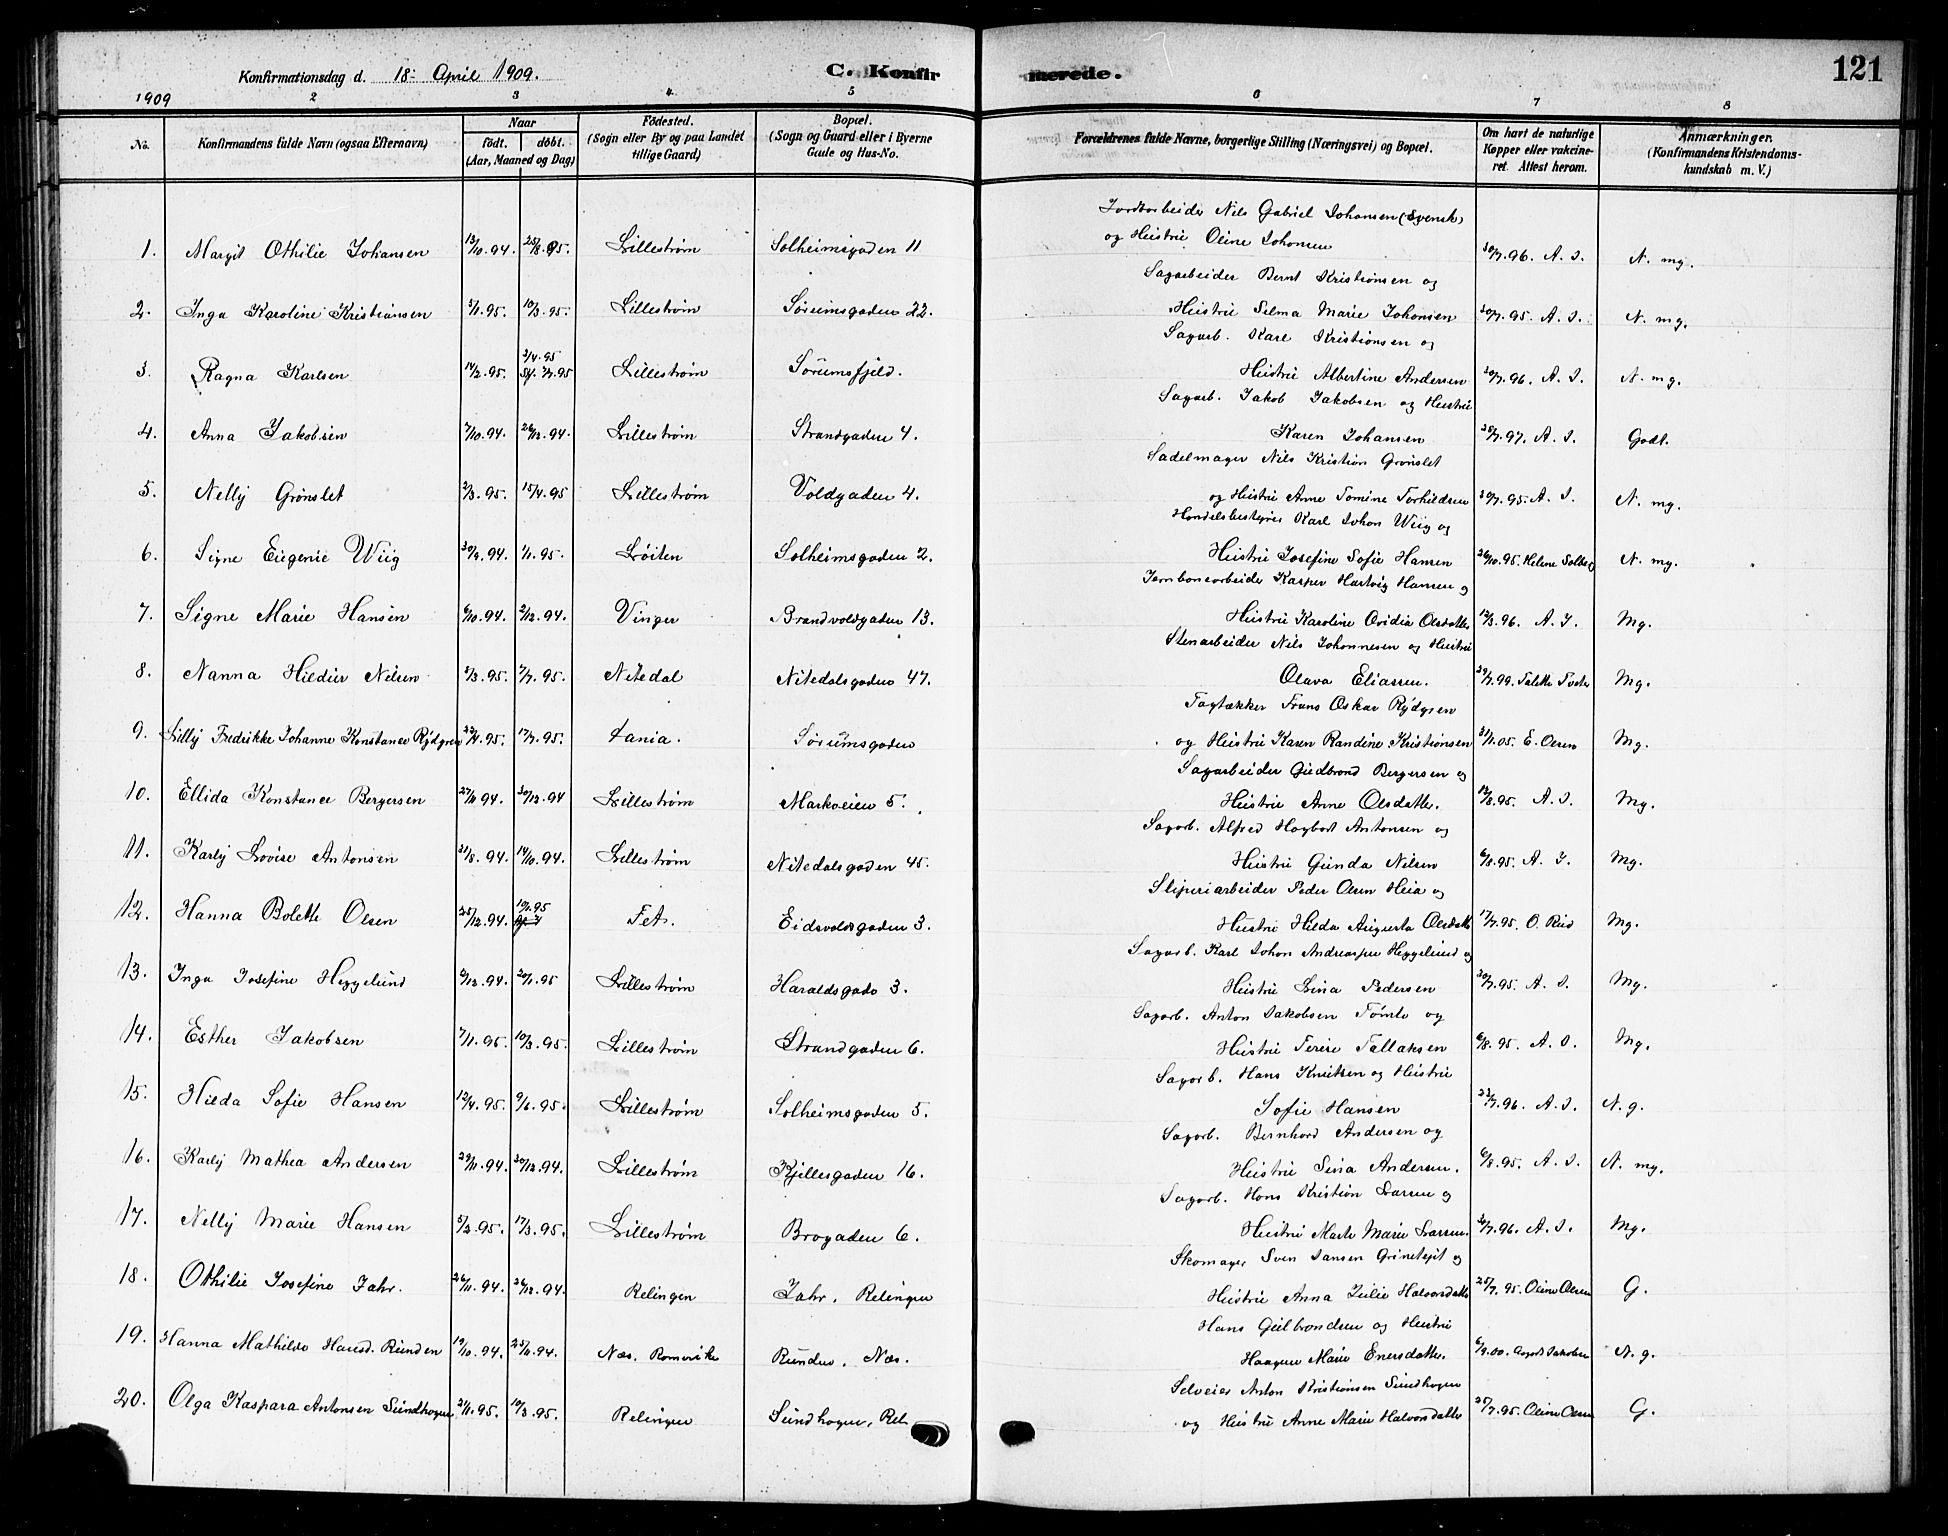 Konfirmationsdag d. 18- April 1909.
C. Konfirmerede.
121
1909 2 3 4 5 6 7 8
No.
Konfirmandens fulde Navn (ogsaa Efternavn)
Naar
født. døbt.
(Aar, Maaned og Dag)
Fødested.
(Sogn eller By og paa Landet
tillige Gaard)
Bopæl.
(Sogn og Gaard eller i Byerne
Gade og Hus-No.
Forældrenes fulde Navne, borgerlige Stilling (Næringsvei) og Bopæl.
Om havt de naturlige
Kopper eller vakcine-
ret. Attest herom.
Anmærkninger.
(Konfirmandens Kristendoms-
kundskab m. V.)
Jordarbeider Nils Gabriel Johansen (Svensk)
1. Margit Othilie Johansen 13/10.94. 25/8.95. Lillestrøm Solheimsgaden 11 og Hustru Oline Johansen 30/7.96. A. J. N. mg.
Sagarbeider Bernt Kristiansen og
2. Inga Karoline Kristiansen 5/1.95. 10/3.95. Lillestrøm Sørumsgaden 22. Hustru Selma Marie Johansen 30/7.95. A. J. N. mg.
Sagarb. Karl Kristiansen og
3. Ragna Karlsen 14/2.95. 2/4.95 Lillestrøm Sørumsfjeld. Hustru Albertine Andersen 30/7.96. A. J. N. mg.
Sagarb. Jakob Jakobsen og Hustru
4. Anna Jakobsen 7/10.94. 26/12.94. Lillestrøm Strandgaden 4. Karen Johansen 30/7.97. A. J. Godt.
Sadelmager Nils Kristian Grønslet
5. Nelly Grønslet 2/3.95. 15/4.95 Lillestrøm Voldgaden 4. og Hustru Anne Tomine Torkildsen 30/7.95. A. J. N. mg.
Handelsbestyrer Karl Johan Wiig og
6. Signe Eugenie Wiig 30/9.94. 1/1.95. Løiten Solheimsgaden 2. Hustru Josefine Sofie Hansen 26/10.95. Helene Solberg N. mg.
Jernbanearbeider Kasper Hartvig Hansen og
7. Signe Marie Hansen 6/10.94. 2/12.94. Vinger Brandvoldgaden 13. Hustru Karoline Ovidia Olsdatter 12/3.96. A. J. Mg.
Stenarbeider Nils Johannesen og Hustru
8. Nanna Hildur Nilsen 3/3.95. 7/7.95. Nitedal Nitedalsgaden 47. Olava Eliassen. 29/7.99. Mg.
Tagtækker Frans Oskar Rydgren
9. Lilly Fredrikke Johanne Konstance Rydgren 22/4.95. 17/7.95. Sørumsgaden og Hustru Karen Randine Kristiansen 31/1.05. E. Olsen Mg.
Sagarbeider Gudbrand Bergersen og
10. Ellida Konstance Bergersen 27/11.94. 30/12.94 Lillestrøm Markveien 5. Hustru Anne Olsdatter. 12/8.95. A. J. Mg.
Sagarb. Alfred Hagbart Antonsen og
11. Karly Lovise Antonsen 31/8.94. 14/10.94. Lillestrøm Nitedalsgaden 45. Hustru Gunda Nilsen 6/8.95. A. J. Mg.
Sliperiarbeider Peder Olsen Heia og
12. Hanna Bolette Olsen 25/12.94. 10/1.95 Fet. Eidsvoldsgaden 3. Hustru Hilda Augusta Olsdatter 17/7.95. O. Rud Mg.
Sagarb. Karl Johan Andreassen Heggelund og
13. Inga Josefine Heggelund 9/12.94. 20/1.95 Lillestrøm Haraldsgade 3. Hustru Lina Pedersen 30/7.95. A. J. Mg.
Sagarb. Anton Jakobsen Tømte og
14. Esther Jakobsen 7/1.95. 10/3.95. Lillestrøm Strandgaden 6. Hustru Terese Tallaksen 6/8.95. A. J. Mg.
Sagarb. Hans Knutsen og Hustru
15. Hilda Sofie Hansen 12/4.95. 9/6.95. Lillestrøm Solheimsgaden 5. Sofie Hansen 22/7.96. A. J. N. g.
Sagarb. Bernhard Andersen og
16. Karly Mathea Andersen 29/11.94. 30/12.94. Lillestrøm Kjellesgaden 16. Hustru Lina Andersen. 6/8.95. A. J. N. mg.
Sagarb. Hans Kristian Larsen og
17. Nelly Marie Hansen 5/2.95. 17/3.95. Lillestrøm Brogaden 6. Hustru Marte Marie Larsen. 30/7.96. A. J. Mg.
Skomager Sven Jansen og
18. Othilie Josefine Jahr. 26/11.94. 26/12.94. Relingen Jahr, Relingen Hustru Anna Julie Halvorsdatter 25/7.95. Oline Olsen G.
Hans Gulbrandsen og Hustru
19. Hanna Mathilde Hansd. Runden 19/10.94. 25/11.94. Næs. Romerike Runden, Næs. Haagine Marie Enersdatter. 6/9.00. N. g.
Selveier Anton Kristiansen Sundhagen
20. Olga Kaspara Antonsen Sundhagen 21/1.95. 10/3.95. Relingen Sundhagen, Rel og Hustru Anne Marie Halvorsdatter 25/7.95. Oline Olsen G.